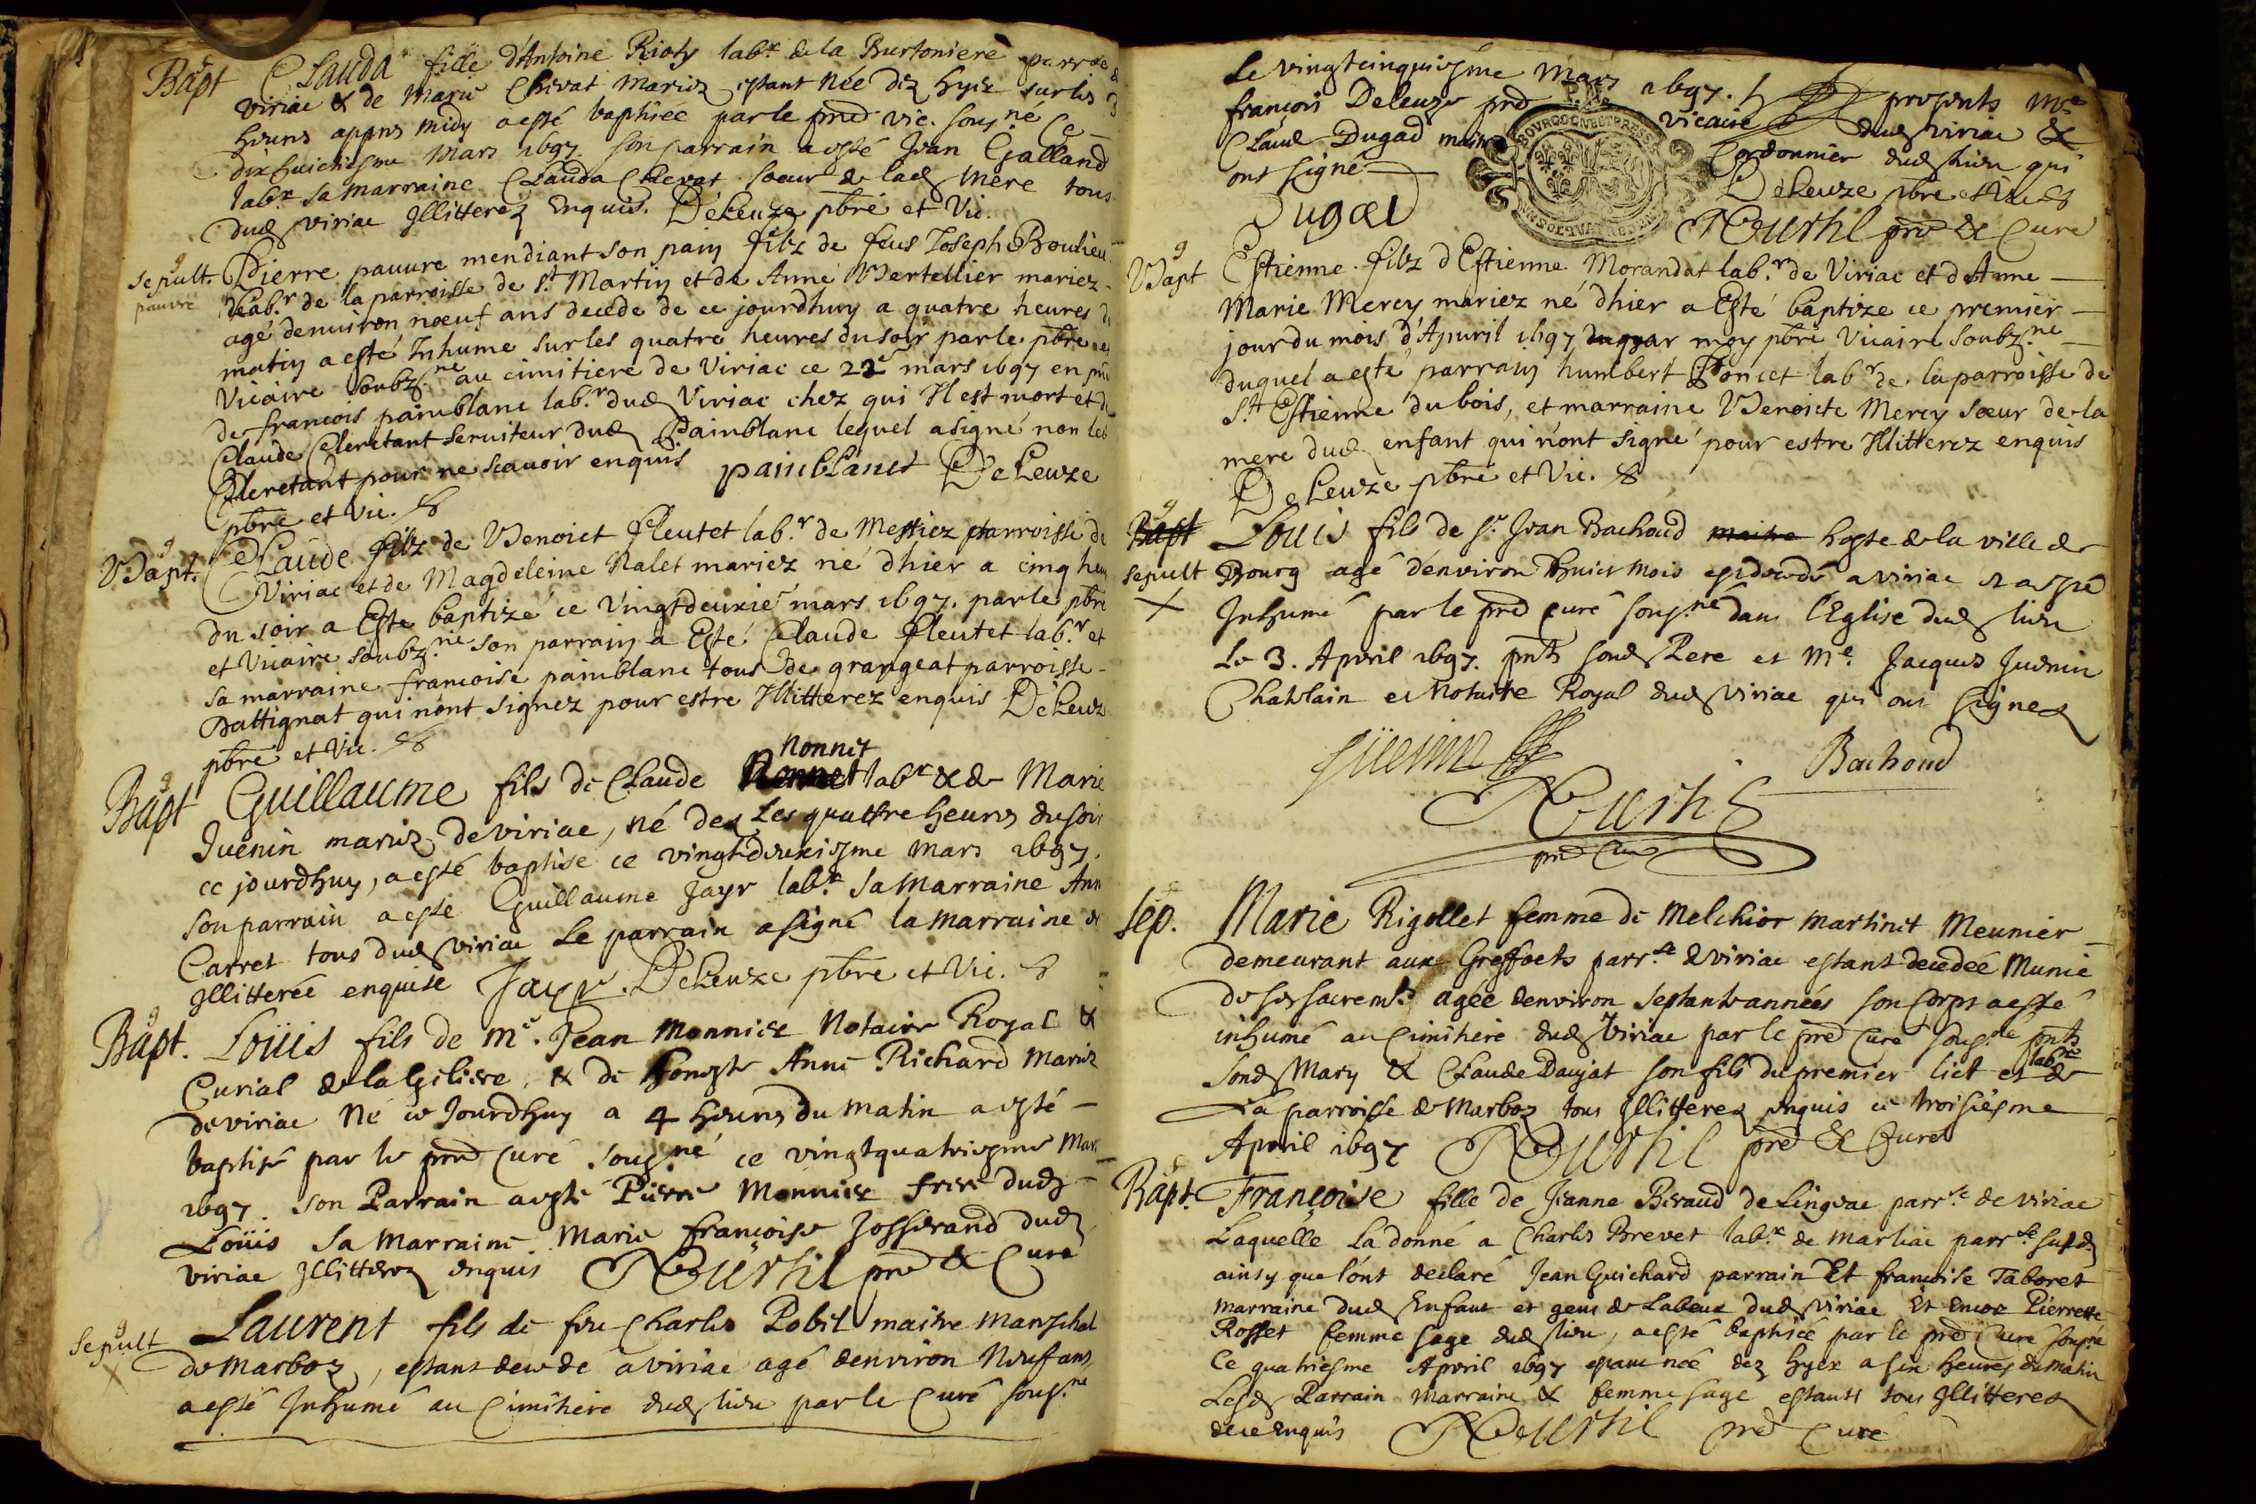 Bapt Clauda fille d'Antoine Rioty labr de la Burtoniere parroe
Viriac & de Marie Chevat Mariez estant née dez hyer sur les 3
heures appres midy a esté baptisée par le pred vic. sousné Ce
dix huictiesme Mars 1697 son parrain a esté Jean Galland
labr sa marraine Clauda Chevat soeur de lad mere tous
dud viriac Illitterez Enquis. DeLeuze pbre et Vic.
Sepult. Pierre pauvre mendiant son pain filz de feus Joseph Boulieu
pauvre
labr de la parroisse de St Martin et de Anne Vertellier mariez
agé denuiron noeuf ans decede de ce jourdhuy a quatre heures du
matin a esté Inhume sur les quatre heures du soir par le pbre
Vicaire soubzne au cimitiere de Viriac ce 22e mars 1697 en
de françois painblanc labr dud Viriac chez qui Il est mort et de
Claude Cleretant seruiteur dud Painblanc lequel a signé non led
Cleretant pour ne scauoir enquis painblanct DeLeuze
pbre et Vic.
Bapt. Claude filz de Benoict fleutet labr de Mestiez parroisse de
Viriac et de Magdeleine Nalet mariez né dhier a cinq heu
du soir a Esté baptizé ce Vingtdeuxie mars 1697. par le pbre
et Vicaire soubzne son parrain a Esté Claude fleutet labr et
sa marraine francoise painblanc tous de grangeat parroisse
Dattignat qui n'ont signez pour estre Illitterez enquis DeLeuze
pbre et Vic.
Nonnet
Bapt Guillaume fils de Claude labr & de Marie
Juenin mariez de viriac, né dez Les quattre heures du soir
ce jourdhuy, a esté baptisé ce vingtdeuxiesme Mars 1697.
son parrain a esté Guillaume Jayr labr Sa Marraine Ann
Carret tous dud viriac Le parrain a signé la marraine
Illitterée enquise Jayr. DeLeuze pbre et Vic.
Bapt. Loüis fils de Me. Jean Monnier Notaire Royal &
Curial de la Geliere, & de honeste Anne Richard Mariez
de viriac Né ce Jourdhuy a 4 heures du matin a esté
baptisé par le pred Curé sousné ce vingtquatriesme Mars
1697. son Parrain a esté Pierre Monnier frere dud
Loüis Sa Marraine Marie françoise Josserand dud
viriac Illitterez enquis pred & Curé
Sepult Laurent fils de feu Charles Pobel maitre Mareschal
X de Marboz, estant decede a viriac agé denviron Neuf ans
a esté Inhumé au Cimitiere dud lieu par le Curé sousne
Le vingtcinquiesme Mars 1697. presents Mre
françois Deleuze pred vicaire dud viriac &
Claude Dugad Cordonnier dud lieu qui
ont signé DeLeuze pbre
Dugad pred & Curé
BOURGOGNE ET BRESSE
Bapt Estienne filz d'Estienne Morandat labr de Viriac et d'Anne
Marie Mercy mariez né dhier a Esté baptize ce premier
jour du mois d'Apuril 1697 par moy pbre Vicaire soubzne
duquel a esté parrain humbert Poncet labr de la parroisse de
St Estienne du bois, et marraine Benoicte Mercy soeur de la
mere dud enfant qui n'ont signé pour estre Illitterez enquis
DeLeuze pbre et Vic.
Bapt Louis fils de Sr Jean Bachoud maitre hoste de la ville de
sepult Bourg agé d'environ huict mois est decedé a viriac & a esté
X Inhumé par le pred curé sousné dans l'Eglise dud lieu
Le 3. Apvril 1697. pnts sond Pere et Me. Jacques Juenin
Chatelain et Notaire Royal dud viriac qui ont signez
Juenin Bachoud
pred Curé
Sep. Marie Rigollet femme de Melchior Martinet Meunier
demeurant aux Greffets parrse de viriac estant decedée Munie
de ses sacremts agée denviron septante années son corps a esté
inhumé au Cimitiere dud Viriac par le pred Curé sousné pnts
Sond Mary & Claude Daujat son fils du premier lict labr de
La parroisse de Marboz tous Illitterez enquis ce troisiesme
Apvril 1697 pred & Curé
Bapt. Françoise fille de Jeanne Beraud de Lingeac parrse de viriac
Laquelle La donné a Charles Brevet labr de Marliac parrse susd
ainsy que l'ont declaré Jean Guichard parrain Et françoise Taboret
marraine dud Enfant et gens de Labeur dud viriac Et encor Pierrette
Rosset femme sage dud lieu, a esté baptisée par le pred Curé sousné
Ce quatriesme Apvril 1697 estant née dez hyer a six heures du matin
Lesd Parrain Marraine & femme sage estants tous Illitterez
de ce enquis pred Curé